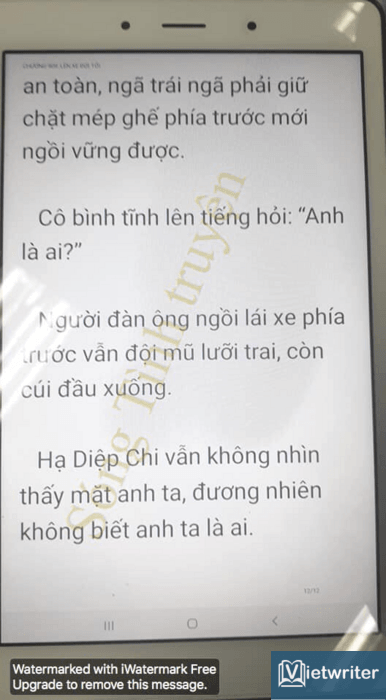 an toàn, ngã trái ngã phải giữ
chặt mép ghế phía trước mới
ngồi vững được.
Cô bình tĩnh lên tiếng hỏi: “Anh
là ai?”
Người đàn ông ngồi lái xe phía
trước vẫn đội mũ lưỡi trai, còn
cúi đầu xuống.
Hạ Diệp Chi vẫn không nhìn
thấy mặt anh ta, đương nhiên
không biết anh ta là ai.
Sóng Tình truyện
Watermarked with iWatermark Free
Upgrade to remove this message.
Vietwriter